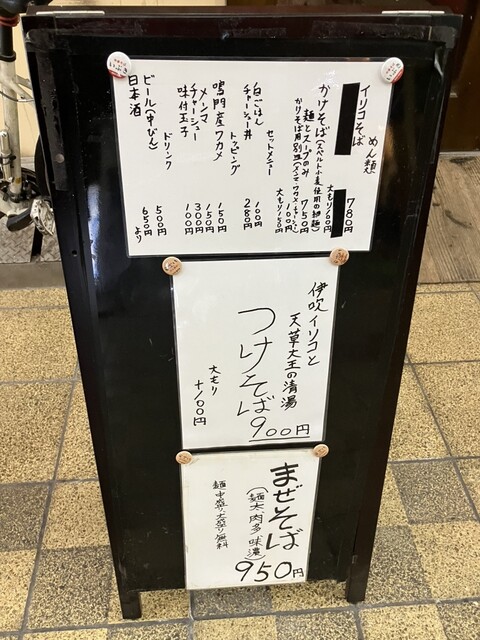 めん類
イリコそば
780円
大もり/60円
かけそば(スペルト小麦使用の細麺)
麺とスープのみ
750円
大もり150円
セットメニュー
白ごはん
100円
チャーシュー丼
280円
トッピング
鳴門産ワカメ
150円
メンマ
150円
チャーシュー
300円
味付玉子
100円
ドリンク
ビール(中びん)
500円
日本酒
650円より
伊吹イリコと
天草大王の清湯
つけそば
900円
大もり
+100円
まぜそば
(麺太、肉多、味濃)
950円
麺中盛、大盛り無料